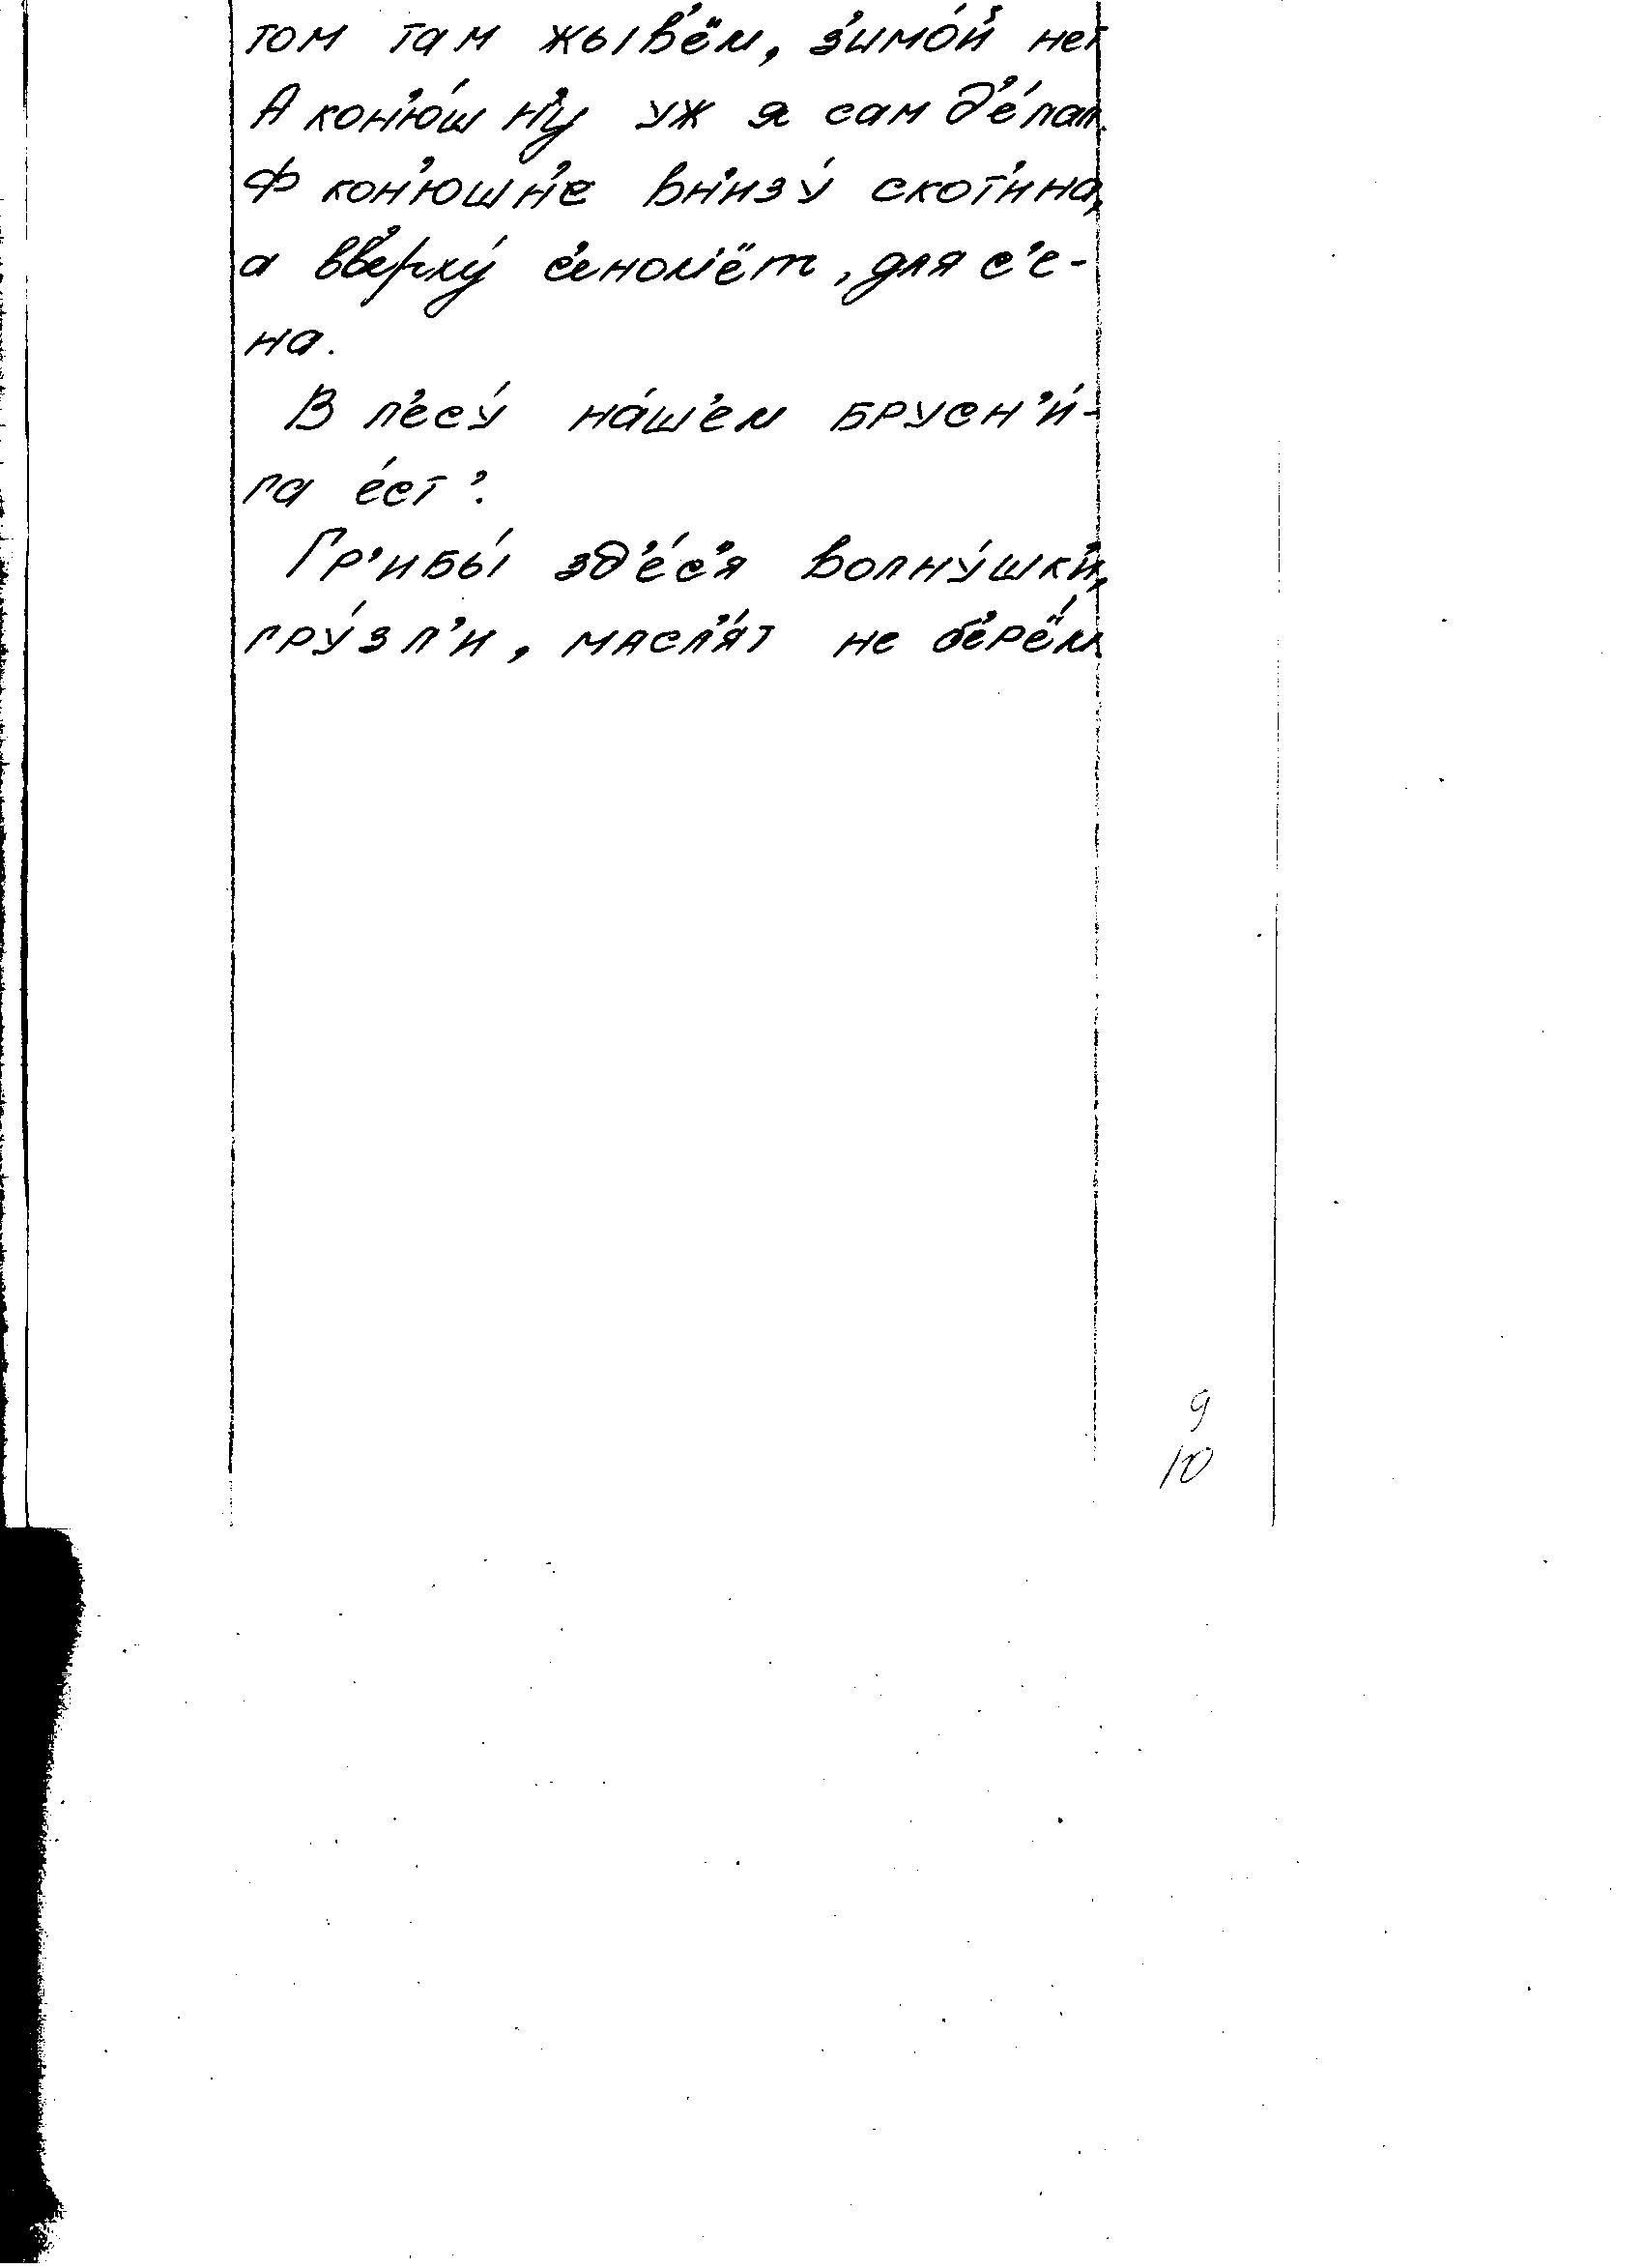 том там жыв'ём, з'имо́й нет
А кон'ю́шн'у уж я сам д'е́лал.
Ф кон'юшн'е вн'изу́ скот'ина,
а вв'ерху́ с'еном'ёт, для с'е-
на.
В л'есу́ на́ш'ем брусн'и́-
га е́ст'.
Гр'ибы́ зд'е́с'я волну́шк'и,
гру́зл'и, масл'я́т не б'ер'ём
9
10